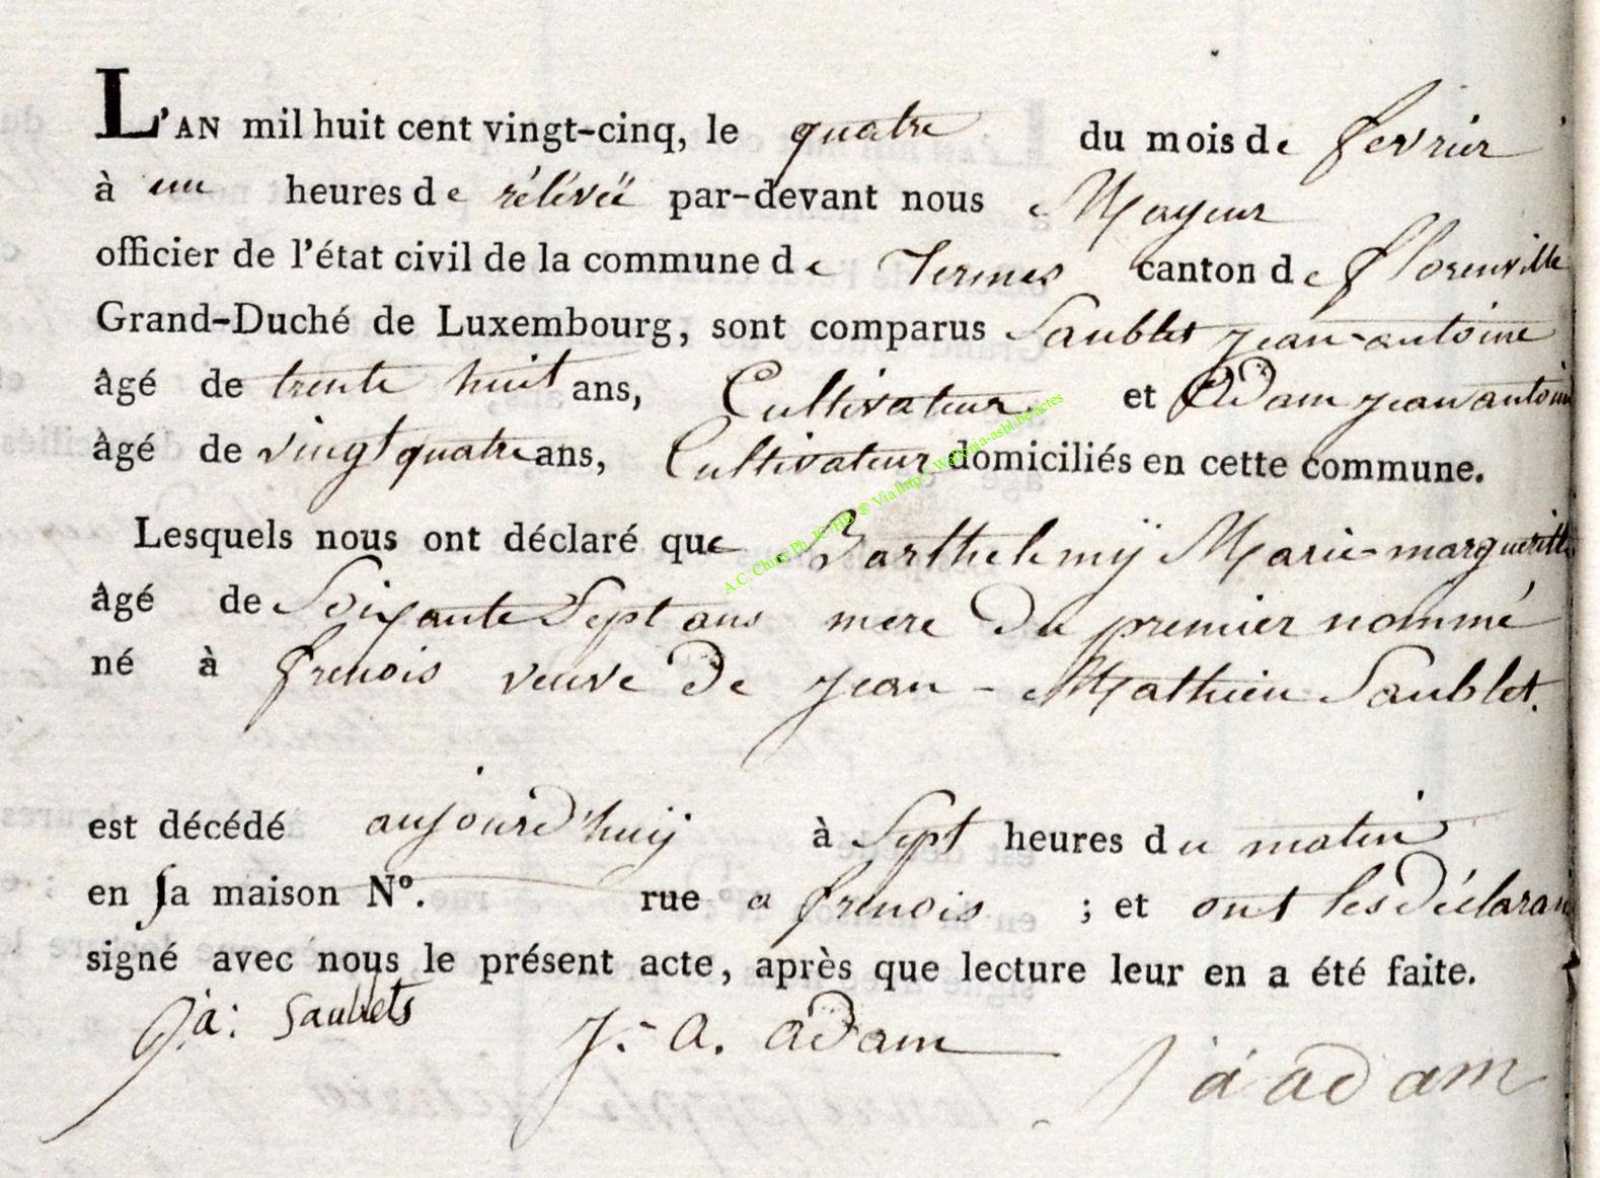 L'AN mil huit cent vingt-cinq, le quatre du mois de fevrier
à une heures de rélévéë par-devant nous Mayeur
officier de l'état civil de la commune de Termes canton de florenville
Grand-Duché de Luxembourg, sont comparus Saublet jean-antoine
âgé de trente huit ans, Cultivateur et Adam jean antoine
âgé de vingt quatre ans, Cultivateur domiciliés en cette commune.
Lesquels nous ont déclaré que Barthelemÿ Marie-margueritte
âgé de Soixante Sept ans mere du premier nommé
né à frenois veuve de jean-Mathieu Saublet.
est décédé aujourd'huij à Sept heures du matin
en sa maison N°. rue a frenois ; et ont les déclarans
signé avec nous le présent acte, après que lecture leur en a été faite.
j.à: Saublets j. A. Adam j à adam